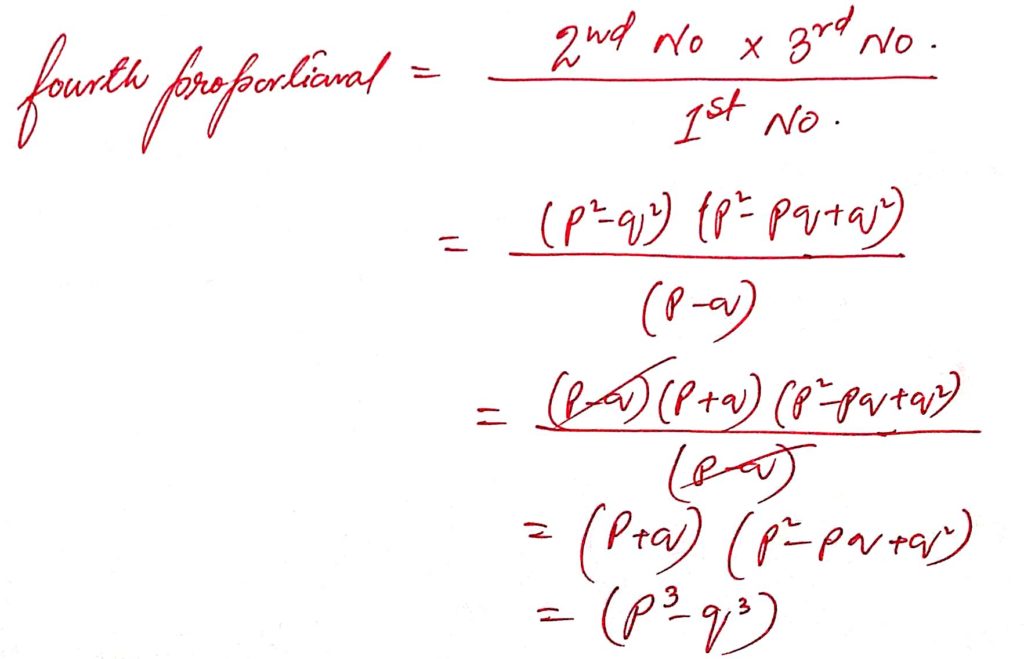 fourth proportional = 2nd No x 3rd No.
1st No.
= (p²-q²) (p²-pq+q²)
(p-q)
= (p-q)(p+q) (p²-pq+q²)
(p-q)
= (p+q) (p²-pq+q²)
= (p³-q³)